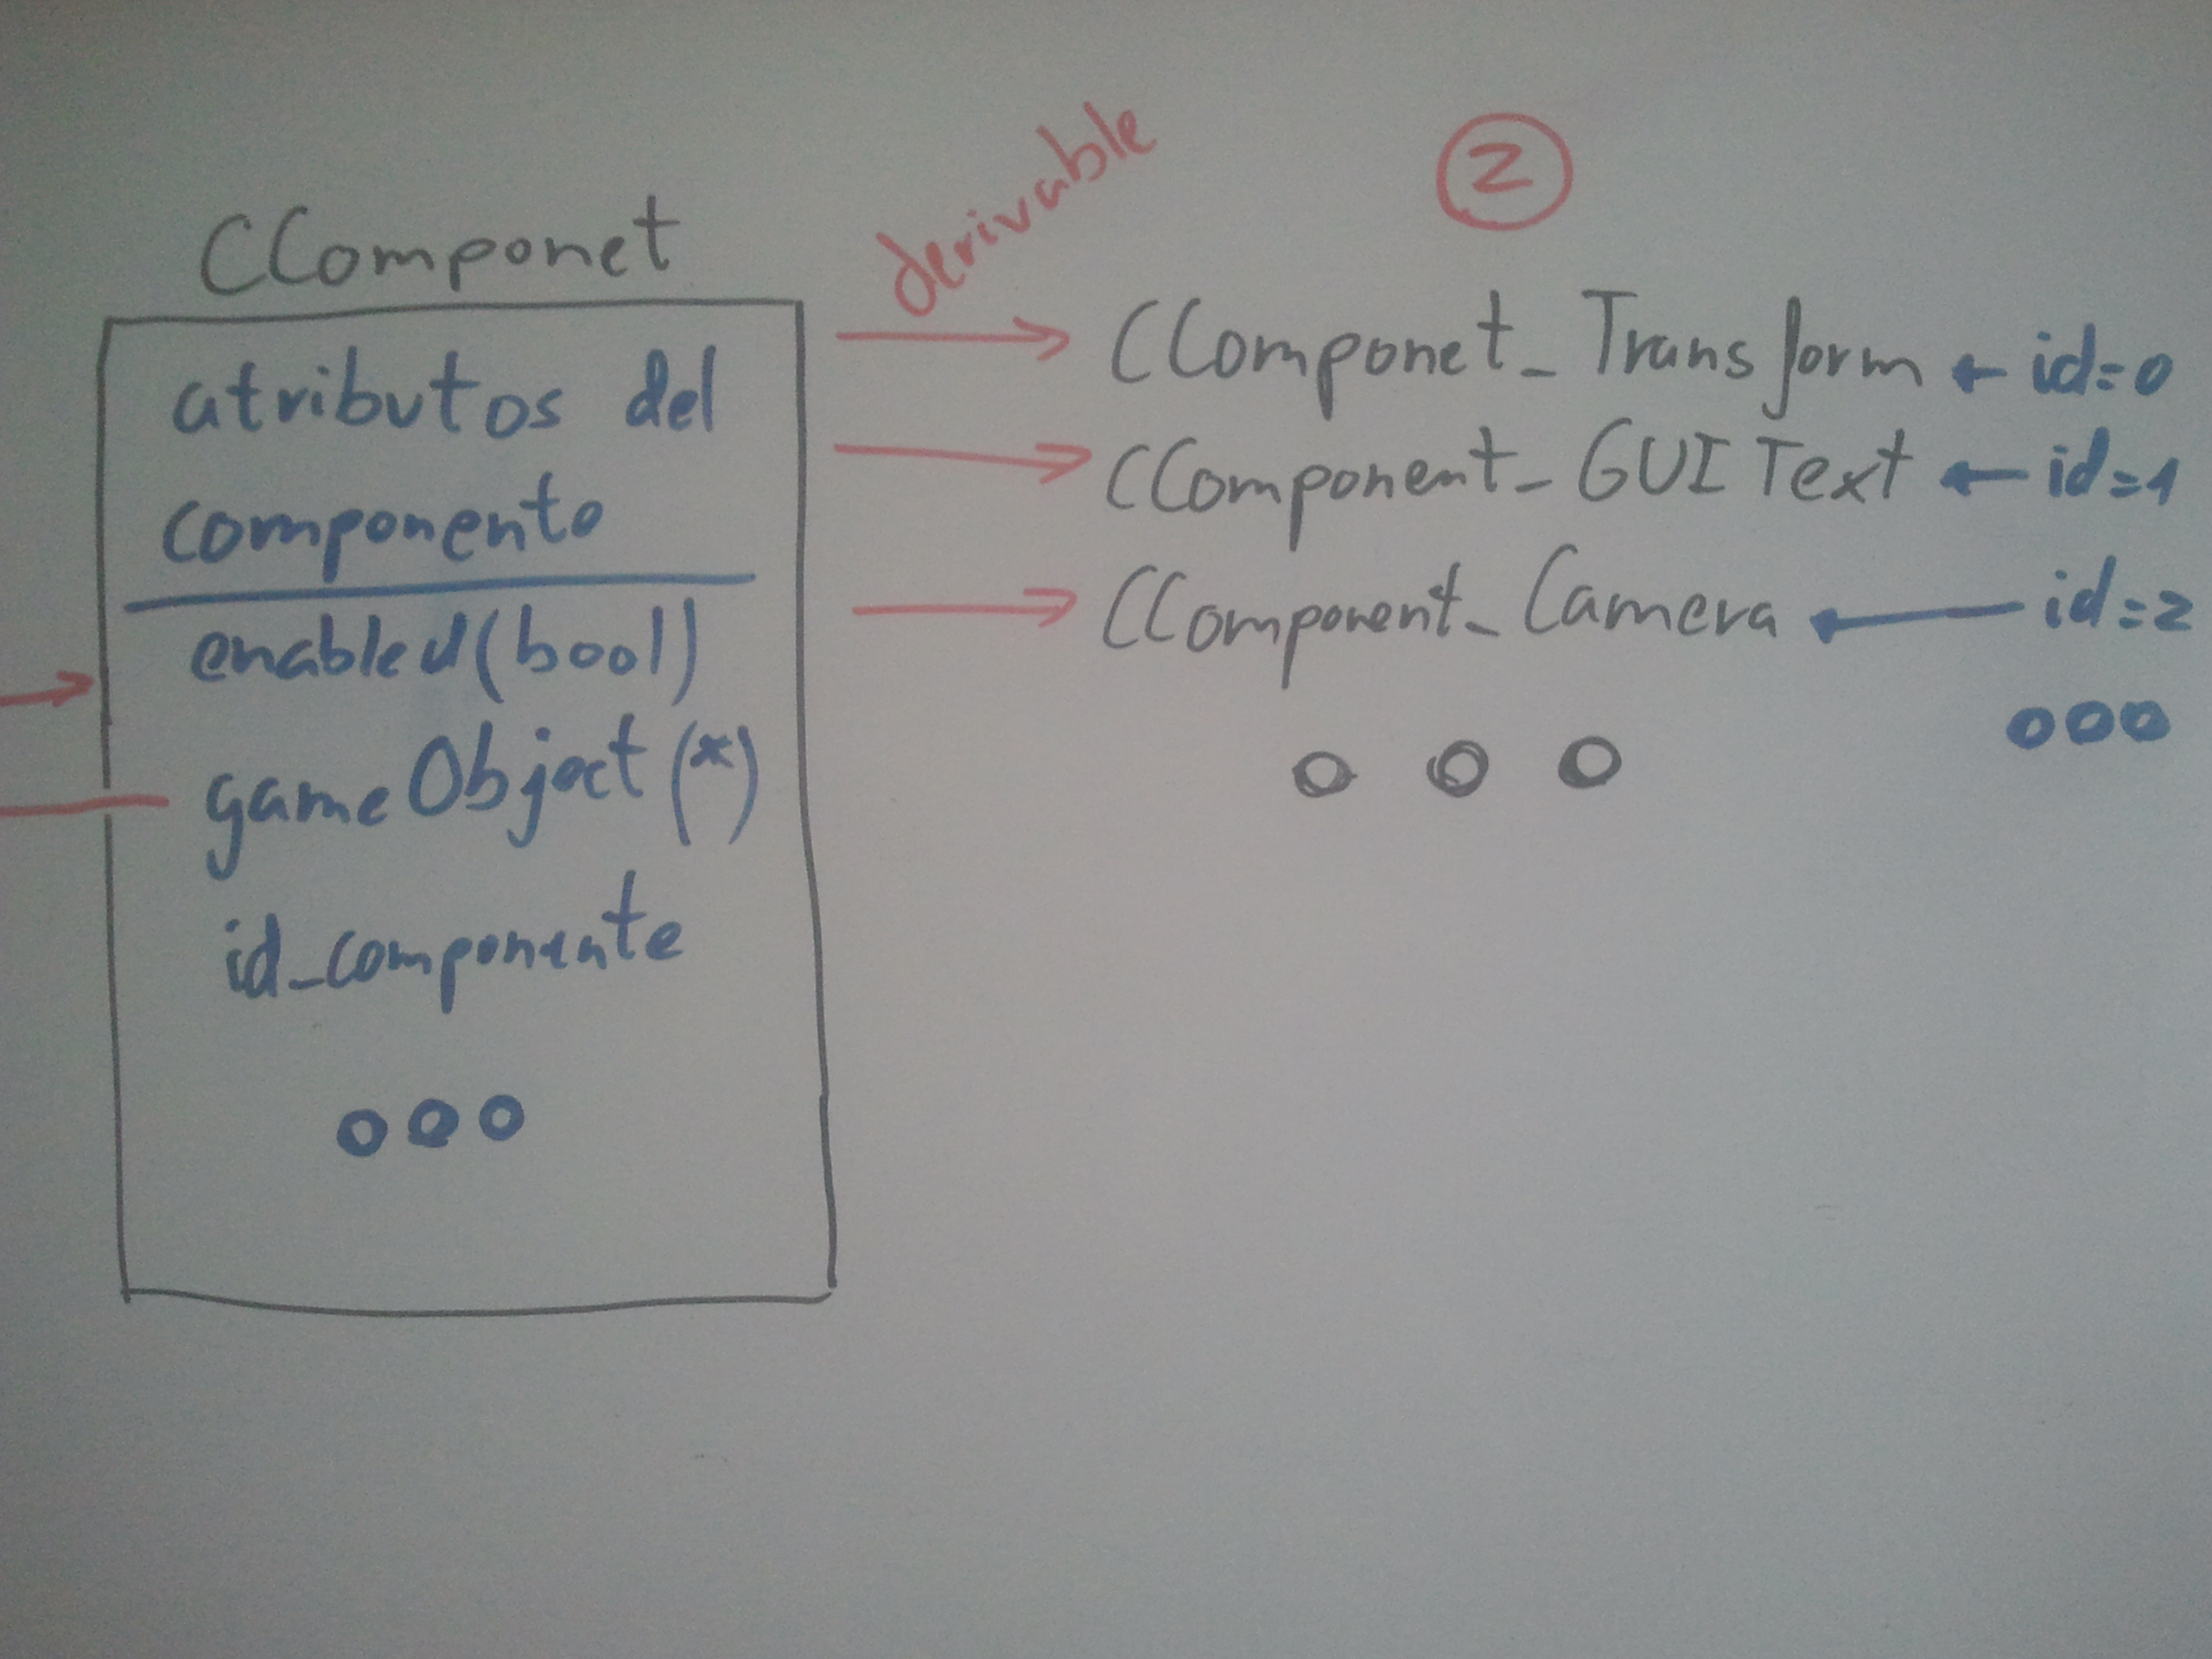 CComponet
atributos del
componento
enabled(bool)
gameObject(*)
id_componente
derivable
2
CComponet_Transform ← id=0
CComponent_GUIText ← id=1
CComponent_Camera ← id=2